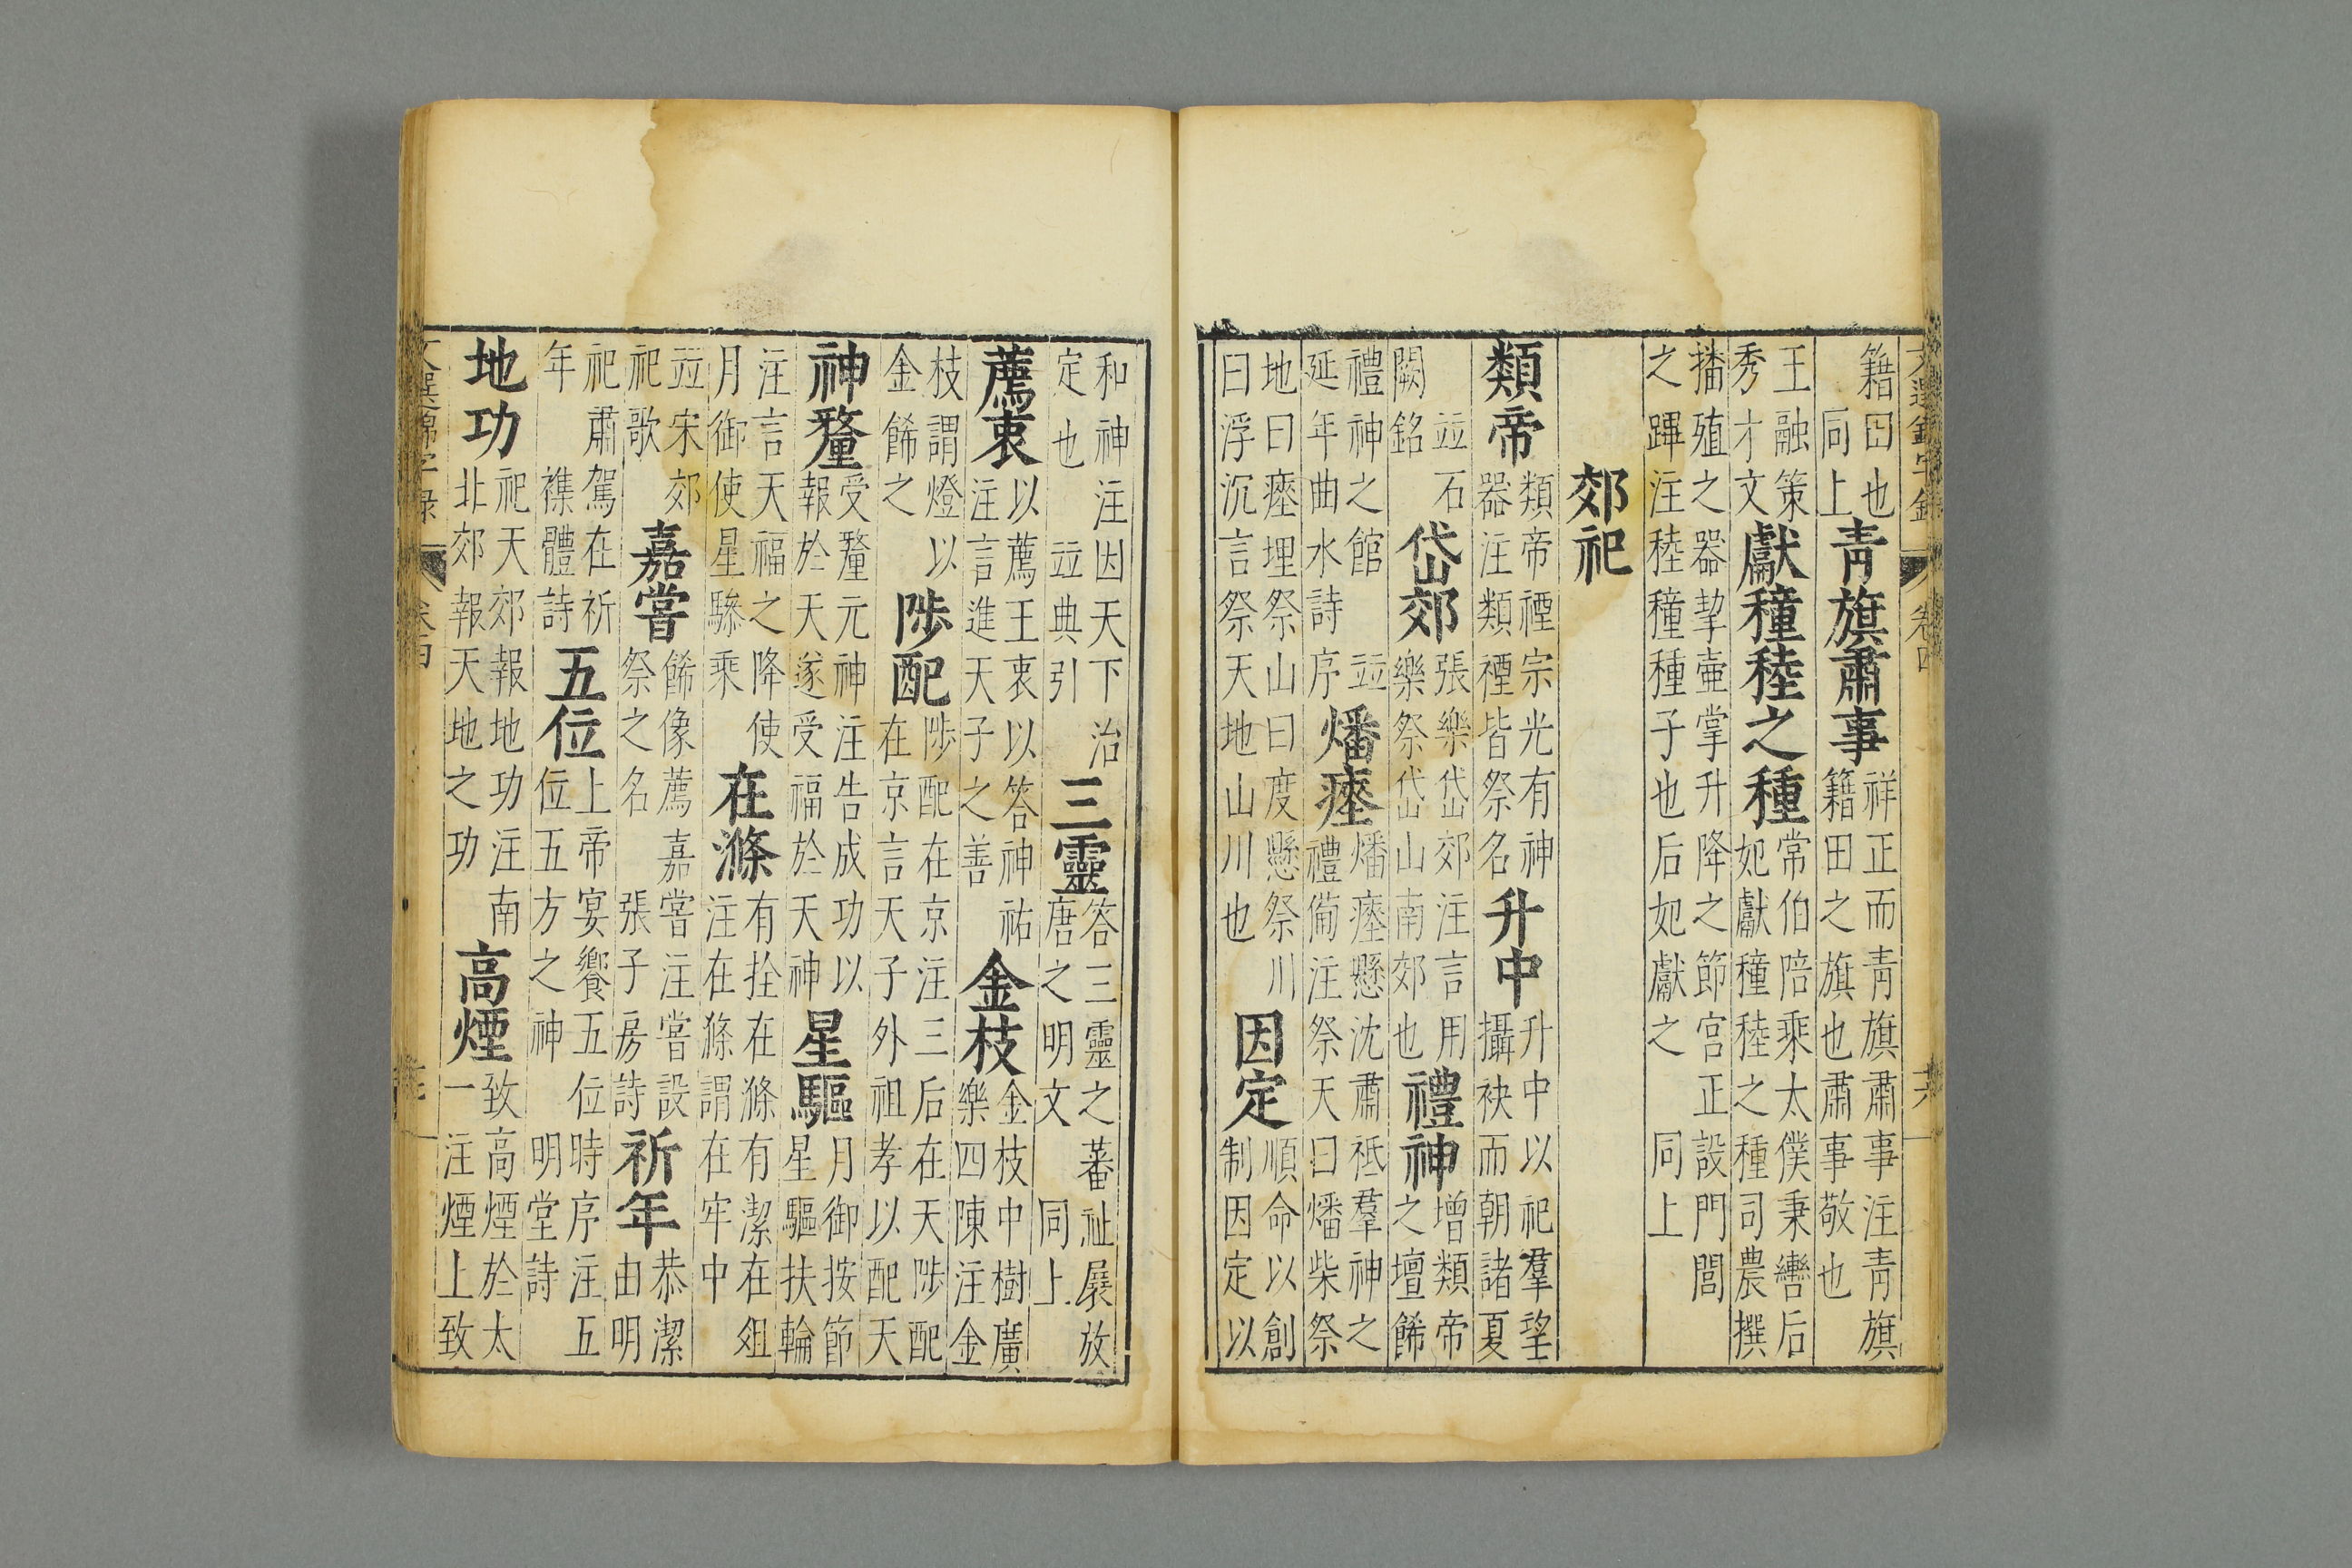 文選錦字錄 卷四 十六
籍田也同上青旗肅事祥正而青旗肅事注青旗籍田之旗也肅事敬也
王融策秀才文獻穜稑之種常伯陪乘太僕秉轡后妃獻穜稑之種司農撰
播殖之器挈壷掌升降之節宫正設門閭之蹕注稑穜種子也后妃獻之 同上
郊祀
類帝類帝禋宗光有神器注類禋皆祭名升中升中以祀羣望攝袂而朝諸夏
竝石闕銘岱郊張樂岱郊注言用樂祭岱山南郊也禮神增類帝之壇餙
禮神之館 竝延年曲水詩序燔瘞燔瘞懸沈肅祗羣神之禮僃注祭天曰燔柴祭
地曰瘞埋祭山曰度懸祭川曰浮沉言祭天地山川也因定順命以創制因定以
和神注因天下治定也 竝典引三靈答三靈之蕃祉展放唐之明文 同上
薦衷以薦王衷以答神祐注言進天子之善金枝金枝中樹廣樂四陳注金
枝謂燈以金餙之陟配陟配在京注三后在天陟配在京言天子外祖孝以配天
神釐受釐元神注告成功以報於天遂受福於天神星驅月御按節星驅扶輪
注言天福之降使月御使星驂乘在滌有拴在滌有潔在俎注在滌謂在牢中
竝宋郊祀歌嘉甞餙像薦嘉甞注甞設祭之名 張子房詩祈年恭潔由明
祀肅駕在祈年 襍體詩五位上帝宴饗五位時序注五位五方之神 明堂詩
地功祀天郊報地功注南北郊報天地之功高煙致高煙於太一注煙上致
文選錦字録 卷四